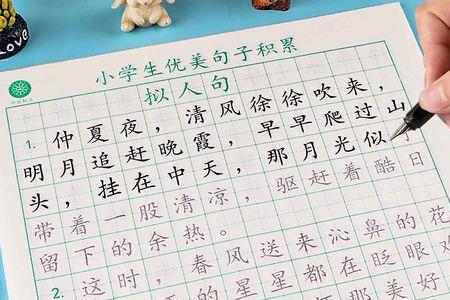 LOVE
小学生优美句子积累
拟人句
1. 仲夏夜，清风徐徐吹来，
明月追赶晚霞，早早爬过山
头，挂在中天，那月光似乎
带着一股清凉，驱赶着酷日
留下的余热。
2. 这时，春风送来沁鼻的花
的星星都在眨眼